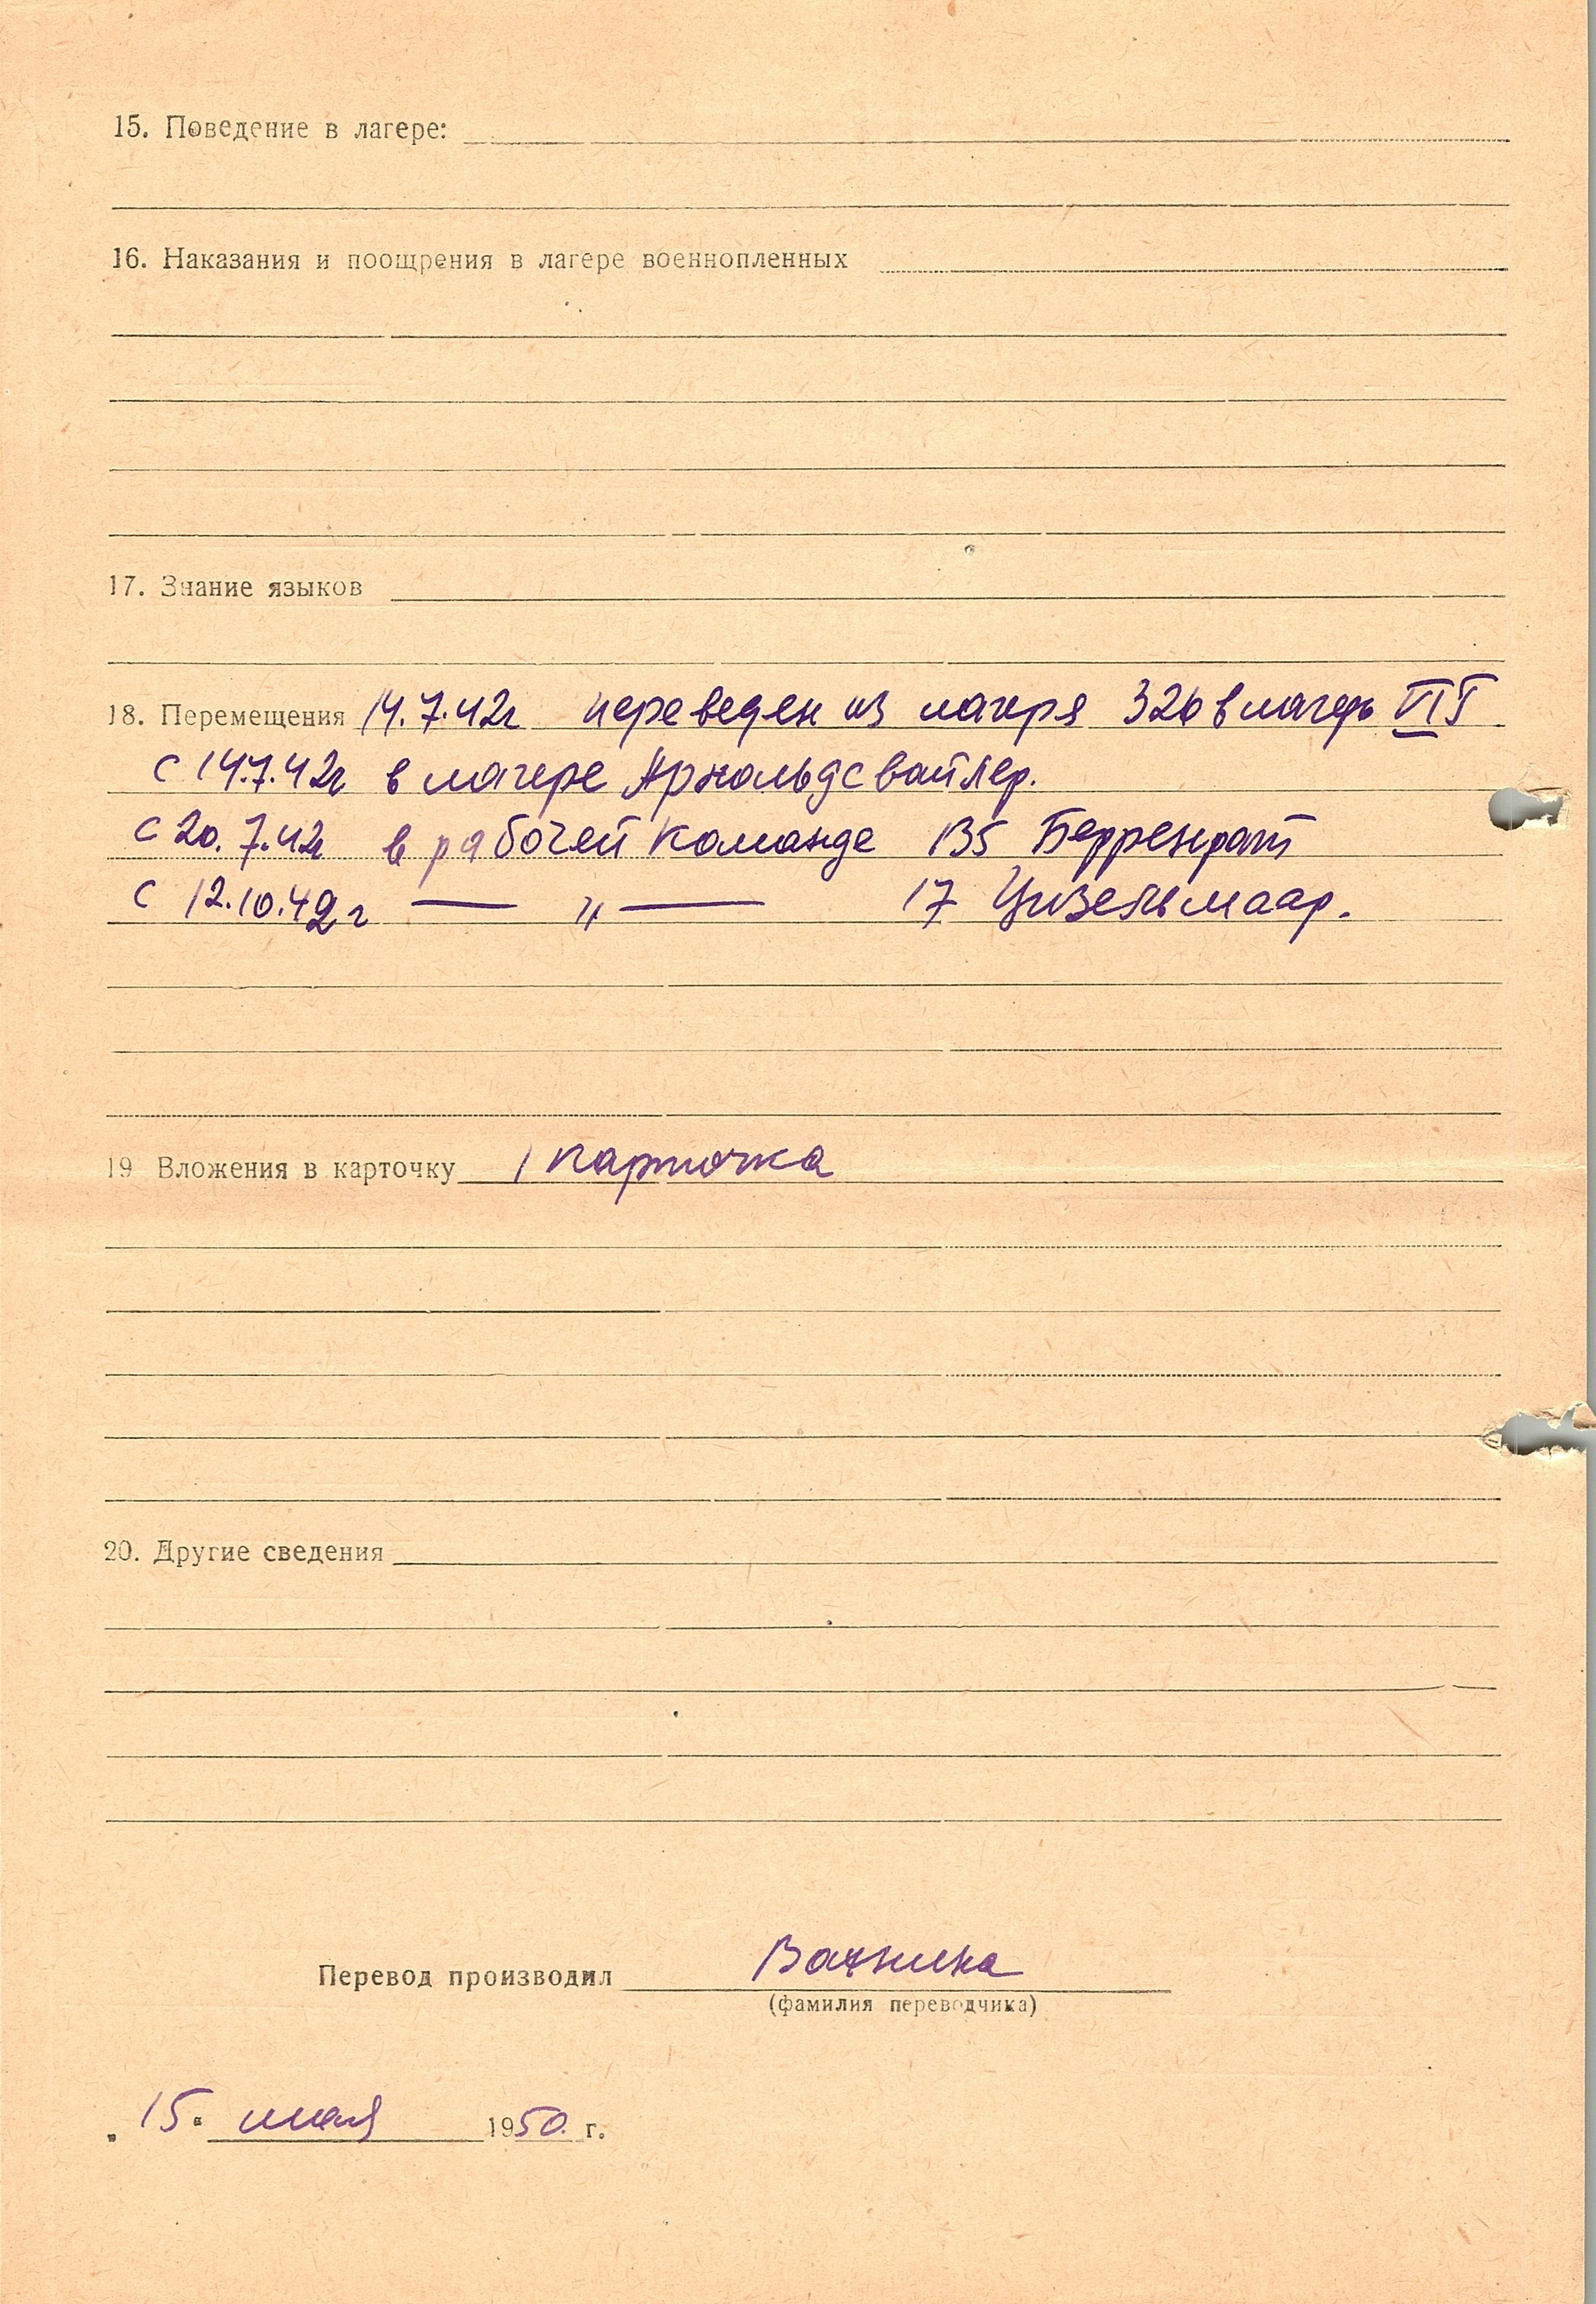 15. Поведение в лагере:
16. Наказания и поощрения в лагере военнопленных
17. Знание языков
18. Перемещения 14.7.42г переведен из лагеря 326 в лагерь
с 14.7.42г в лагере Арнольдсвайлер.
с 20.7.42г в рабочей команде Берренрат
с 12.10.42г — „ — 17 Цизельмаар.
19 Вложения в карточку 1 карточка
20. Другие сведения
Перевод производил
(фамилия переводчика)
„ 15 " мая 1950 г.